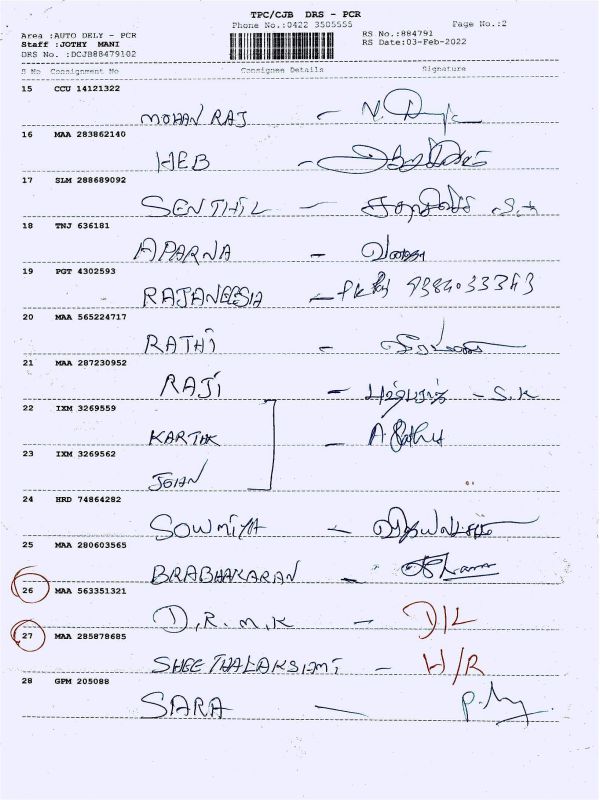 TPC/CJB DRS - PCR
Phone No.:0422 3505555 Page No.:2
Area :AUTO DELY - PCR RS No.:884791
Staff :JOTHY MANI RS Date:03-Feb-2022
DRS No. :DCJB88479102
S No Consignment No Consignee Details Signature
15 CCU 14121322
MOHAN RAJ -
16 MAA 283862140
HEB -
17 SLM 288689092
SENTHIL -
18 TNJ 636181
APARNA -
19 PGT 4302593
RAJANEESIA -
20 MAA 565224717
RATHI -
21 MAA 287230952
RAJI - - S.K
22 IXM 3269559
KARTHK -
23 IXM 3269562
JOHN
24 HRD 74864282
SOWMIYA -
25 MAA 280603565
BRABHAKARAN -
26 MAA 563351321
D.R.M.K - D/L
27 MAA 285878685
SHEETHALAKSHMI - H/R
28 GPM 205088
SARA -